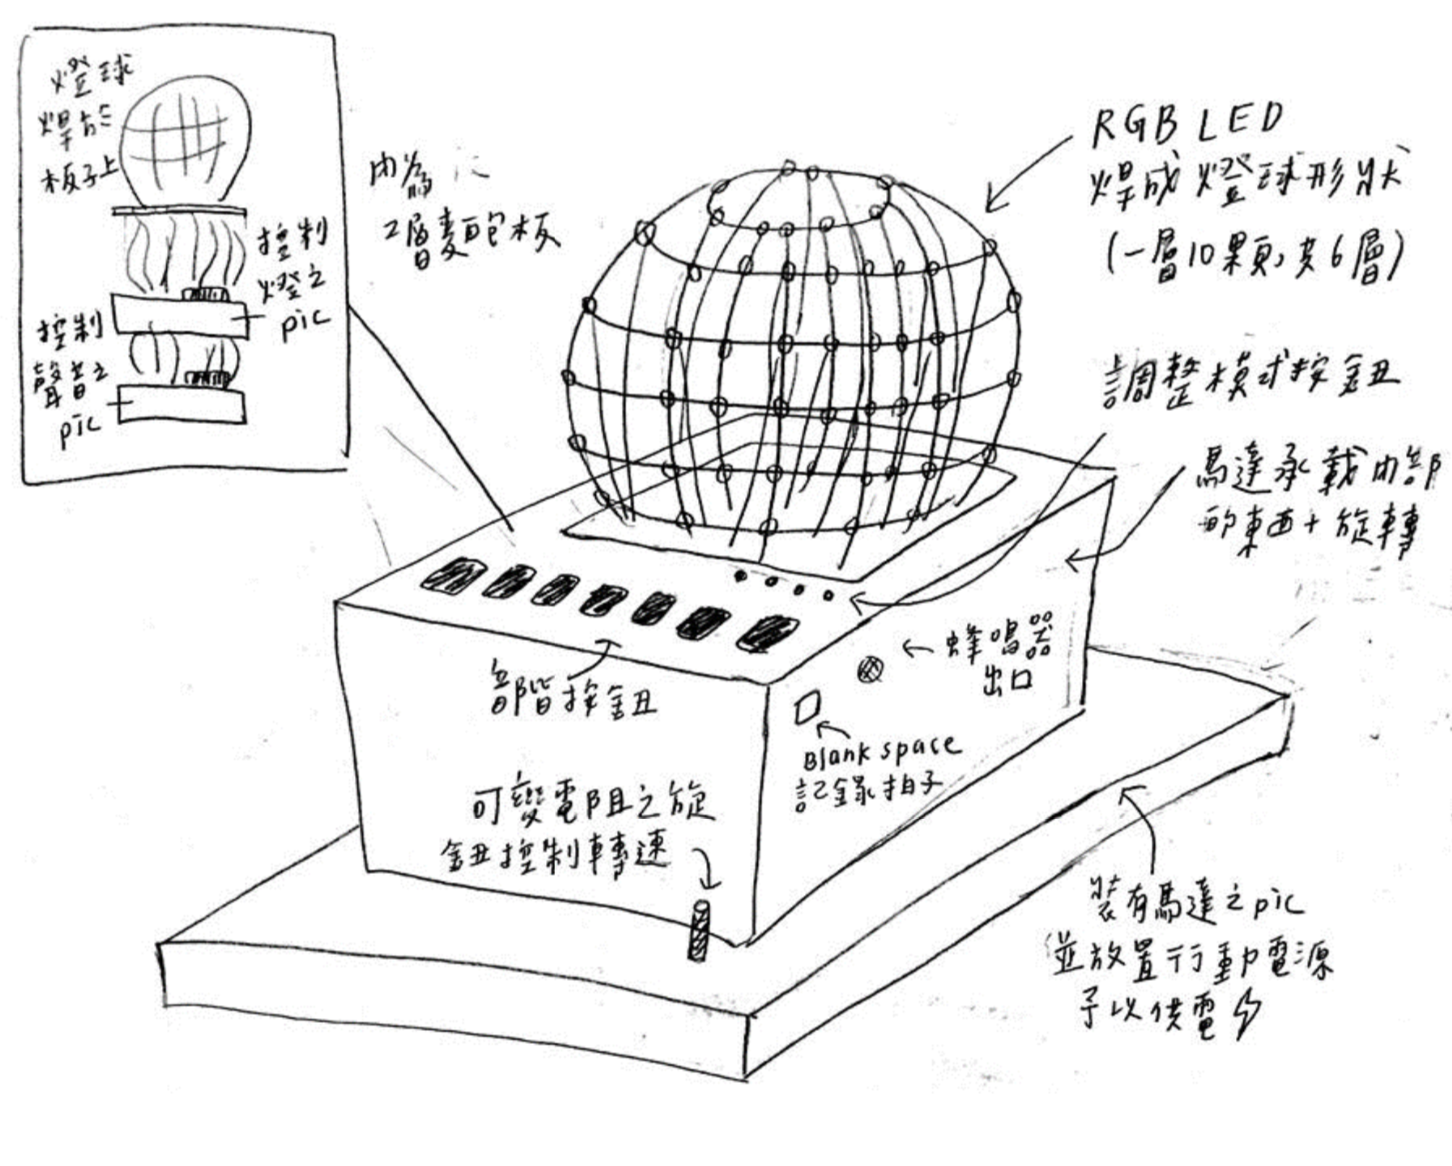 燈球
焊於
板子上
控制
燈之
pic
控制
聲音之
pic
內為
2層麵包板
RGB LED
焊成燈球形狀
(一層10顆，共6層)
調整模式按鈕
馬達承載內部
的東西+旋轉
蜂鳴器
出口
音階按鈕
Blank space
記錄拍子
可變電阻之旋
鈕控制轉速
裝有馬達之pic
並放置行動電源
予以供電